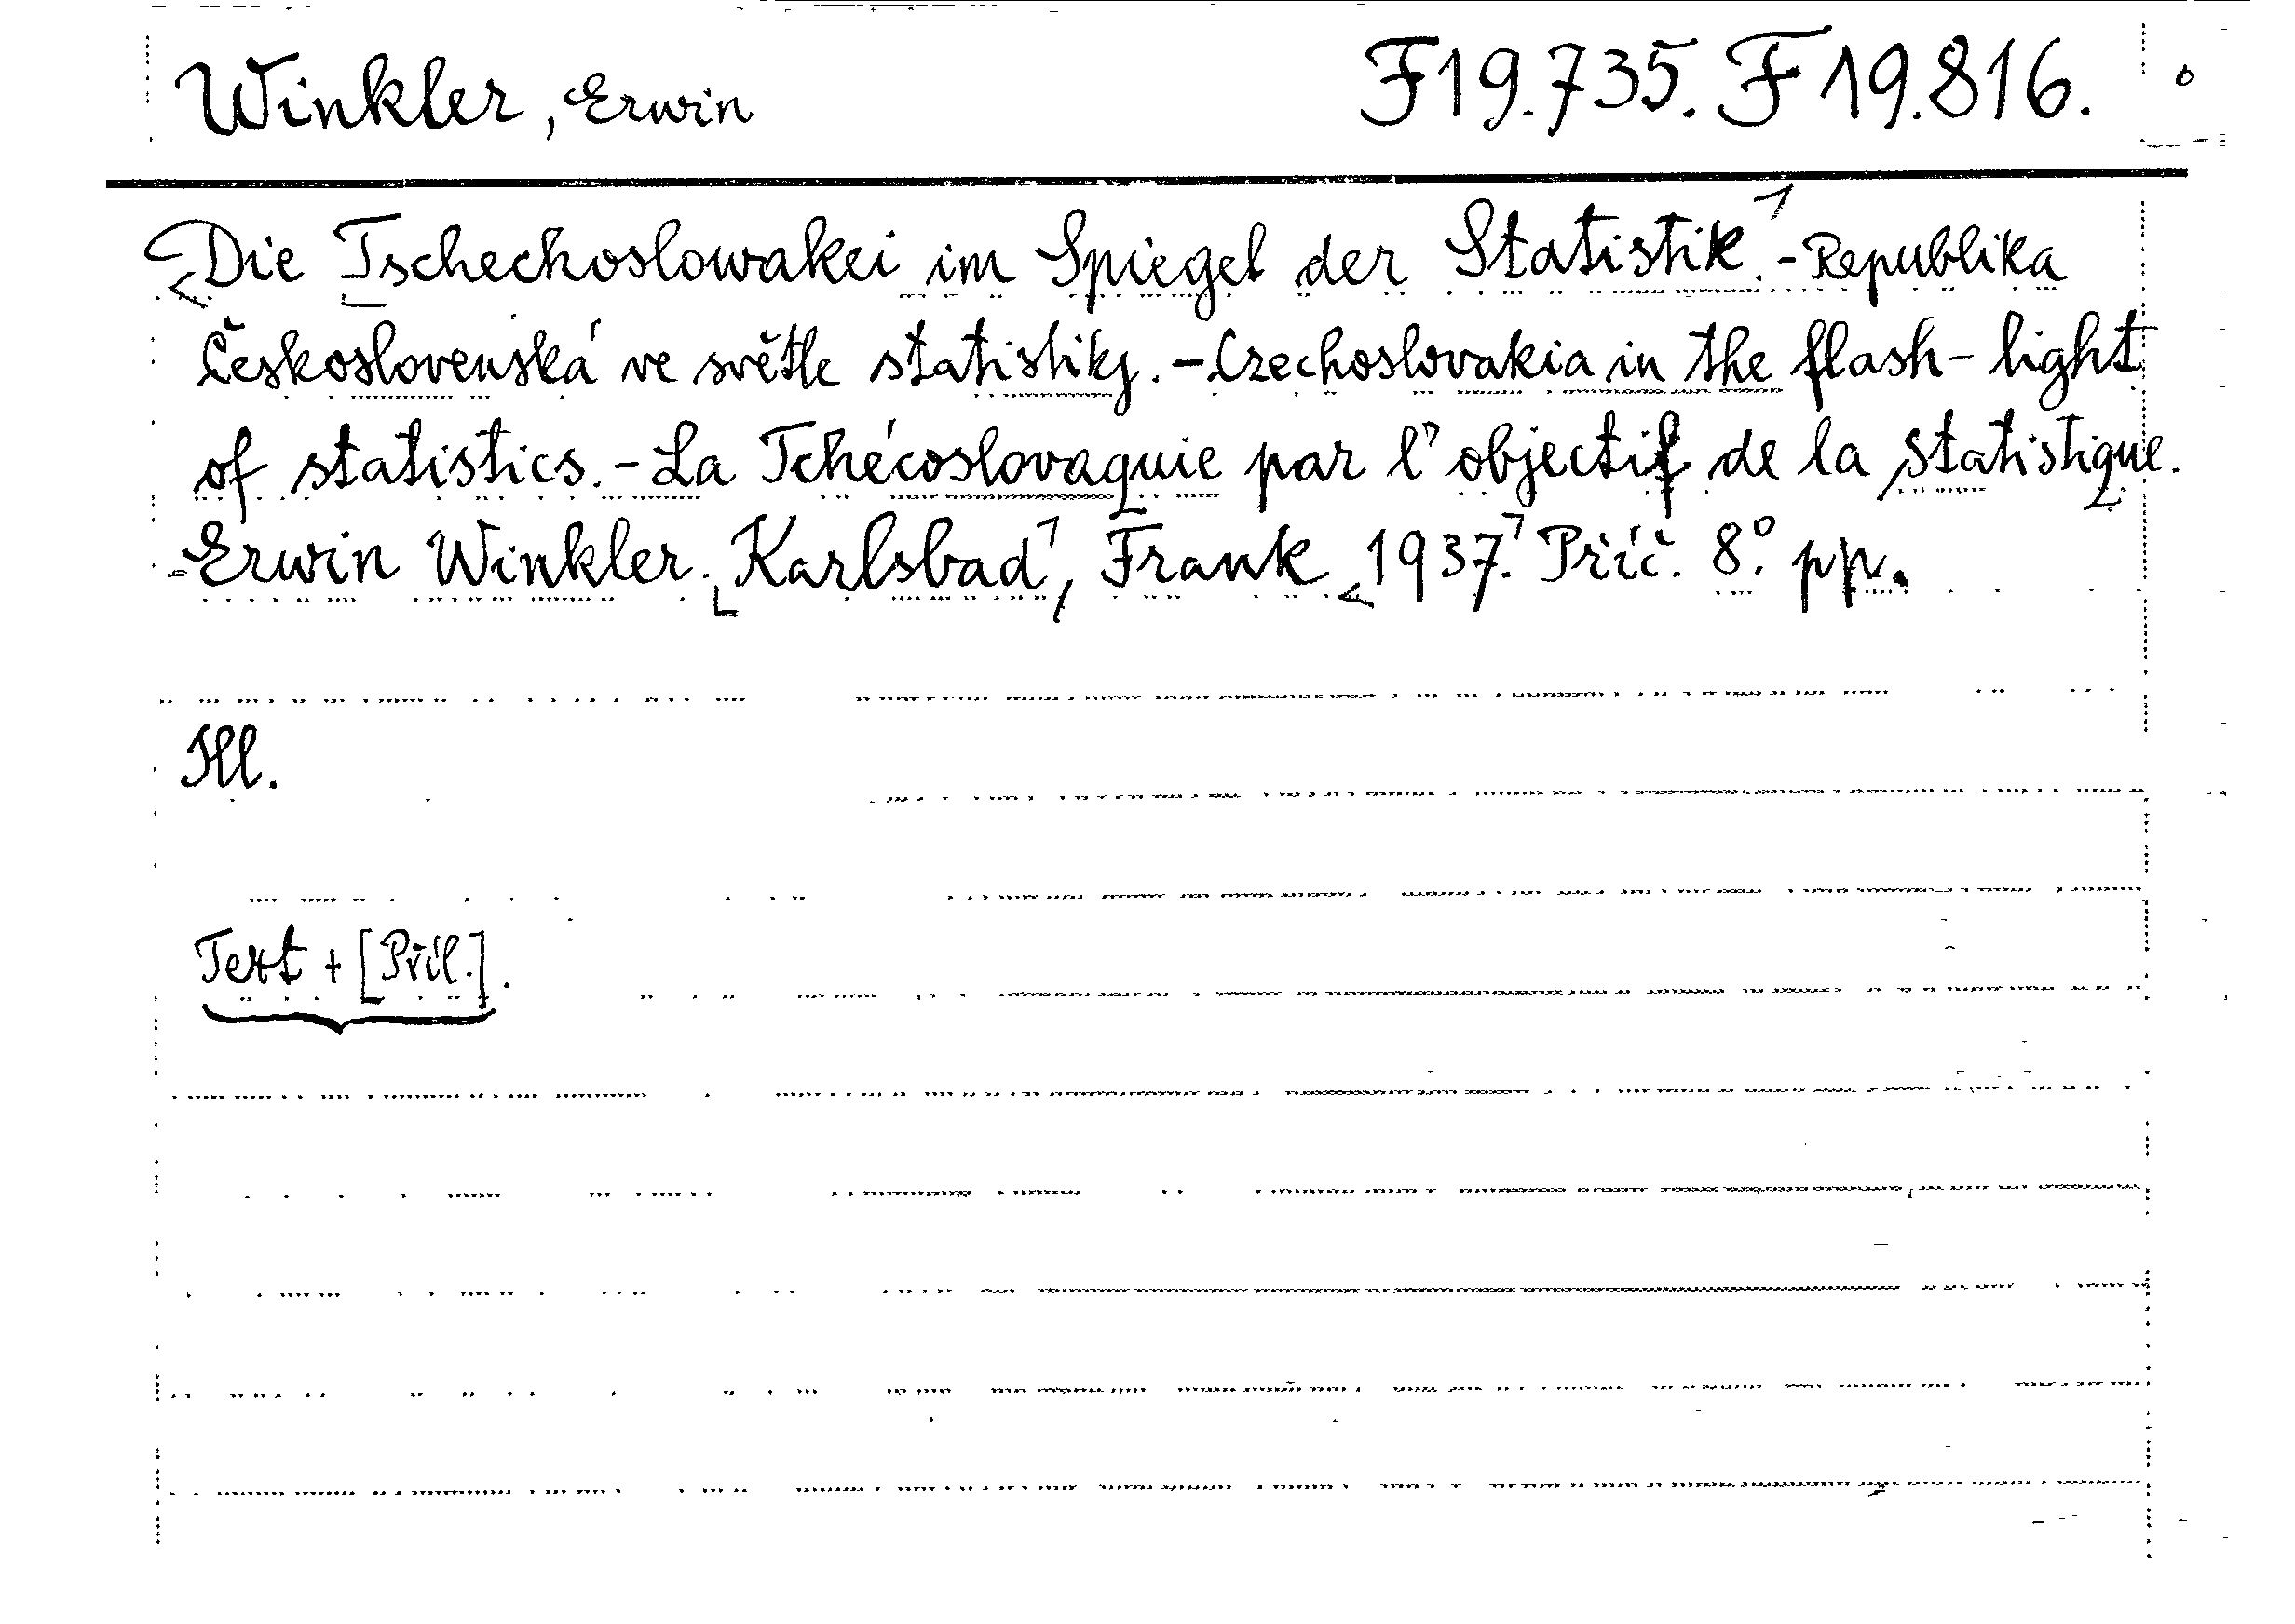 Winkler, Erwin F19.735. F19.816.
Die Tschechoslowakei im Spiegel der Statistik. - Republika
Československá ve světle statistiky. - Czechoslovakia in the flash-light
of statistics. - La Tchécoslovaquie par l'objectif de la statistique.
- Erwin Winkler. Karlsbad, Frank 1937. Příč. 8°. pp.
Ill.
Text + [Příl.].